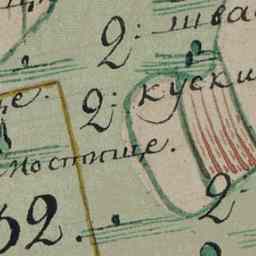 2: шва
2: куски
це.
мостище.
32.
2: